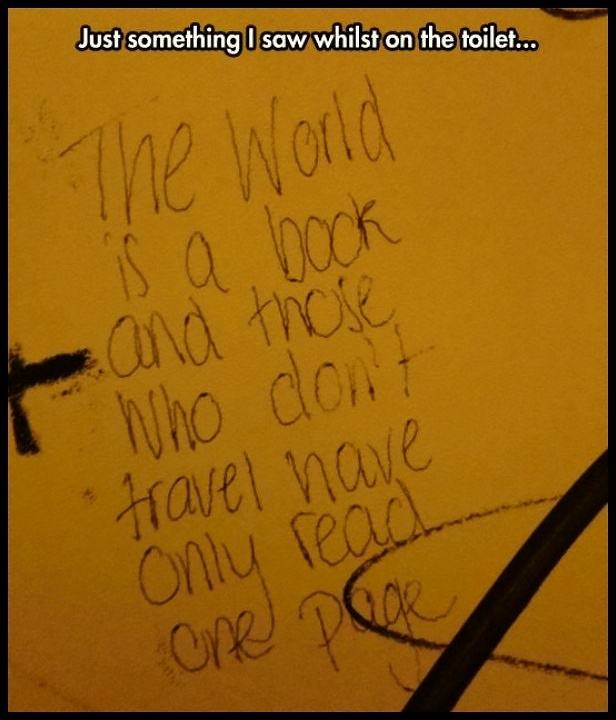 Just something I saw whilst on the toilet...
The World
is a book
and those
who don't
travel have
only read
one page